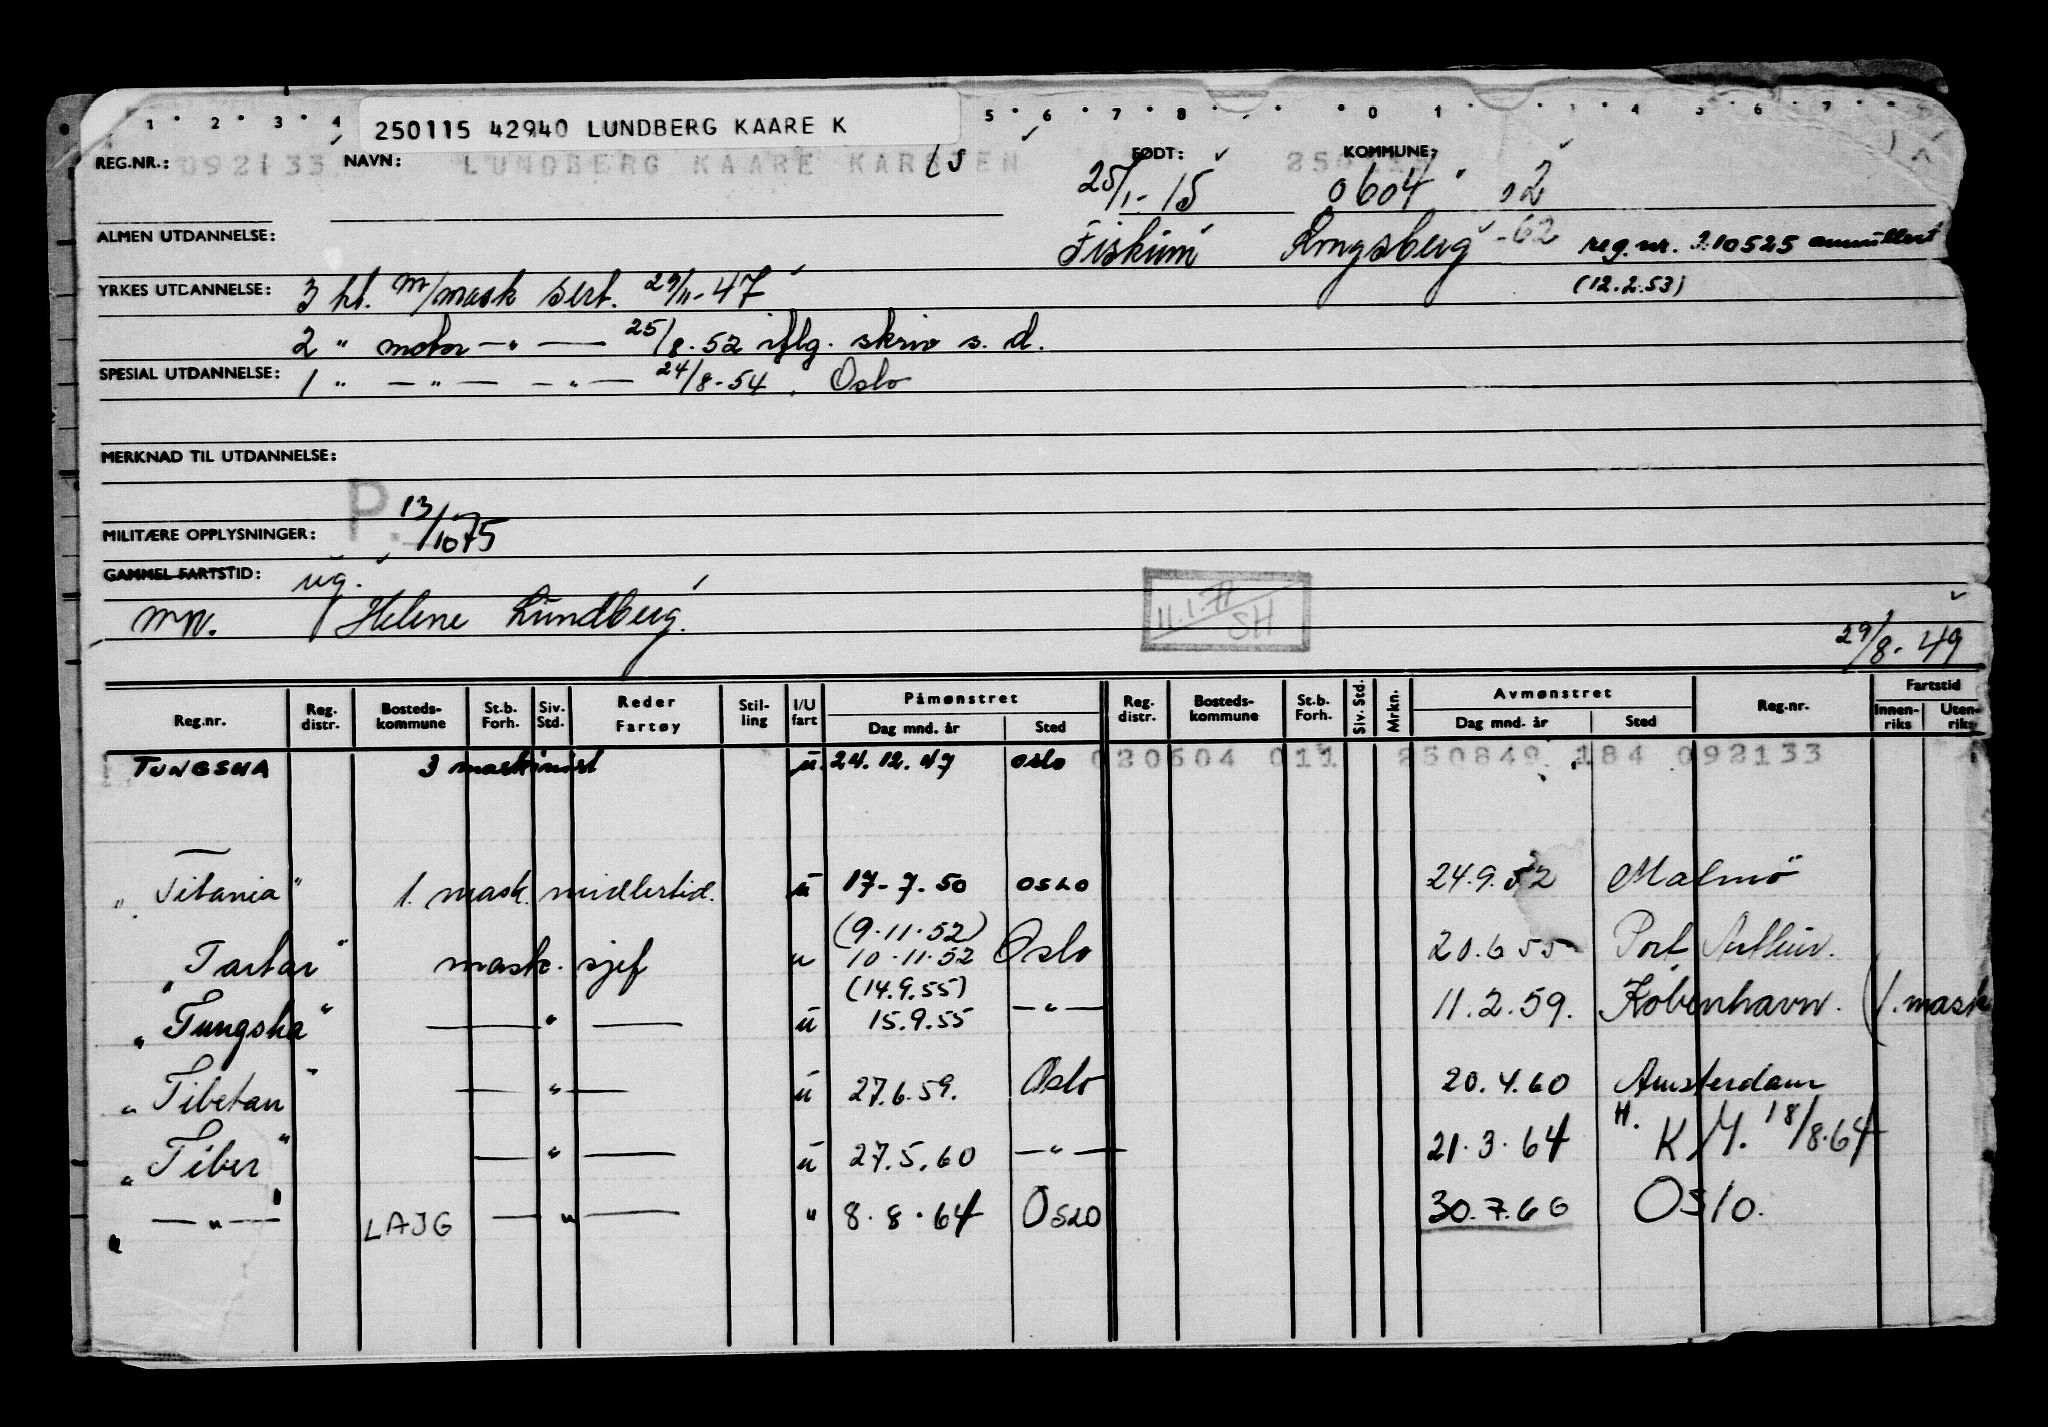 1 2 3 4 5 6 7 8 0 1 4 5 6 7
250115 42940 LUNDBERG KAARE K
REG.NR.: 092133 NAVN: LUNDBERG KAARE KARSTEN FØDT: KOMMUNE:
25/1-15 0604 02
ALMEN UTDANNELSE: Fiskum Kongsberg -62 reg.nr. 210525 annullert
YRKES UTDANNELSE: 3 kl. m/mask sert. 29/11-47 (12.2.53)
2 " motor — " — 25/8.52 iflg. skriv s.d.
SPESIAL UTDANNELSE: 1 " — " — — " — 24/8-54, Oslo
MERKNAD TIL UTDANNELSE:
P. 13/10 75
MILITÆRE OPPLYSNINGER:
GAMMEL FARTSTID: ug.
mn. Helene Lundberg.
11.1.71 SH
29/8-49
Reg.nr. Reg. distr. Bosteds-kommune St.b. Forh. Siv. Std. Reder Fartøy Stil-ling I/U fart Påmønstret Dag mnd. år Sted Reg. distr. Bosteds-kommune St.b. Forh. Siv. Std. Mrkn. Avmønstret Dag mnd. år Sted Reg.nr. Fartstid Innen-riks Uten-riks
TUNGSHA 3 maskinist u. 24.12.47 oslo 020604 011 250849 184 092133
"Titania" 1. mask. midlertid. u 17-7.50 OSLO 24.9.52 Malmö
(9.11.52)
"Tartar" mask. sjef u 10.11.52 Oslo 20.6 55 Port Arthur.
(14.9.55)
"Tungsha" — " — u 15.9.55 — " — 11.2.59. København. (1. mask
"Tibetan" — " — u 27.6.59. Oslo 20.4.60 Amsterdam
"Tiber" — " — u 27.5.60 — " — 21.3.64 H. K/M. 18/8.64
— " — LAJG — " — " 8.8.64 OSLO 30.7.66 Oslo.